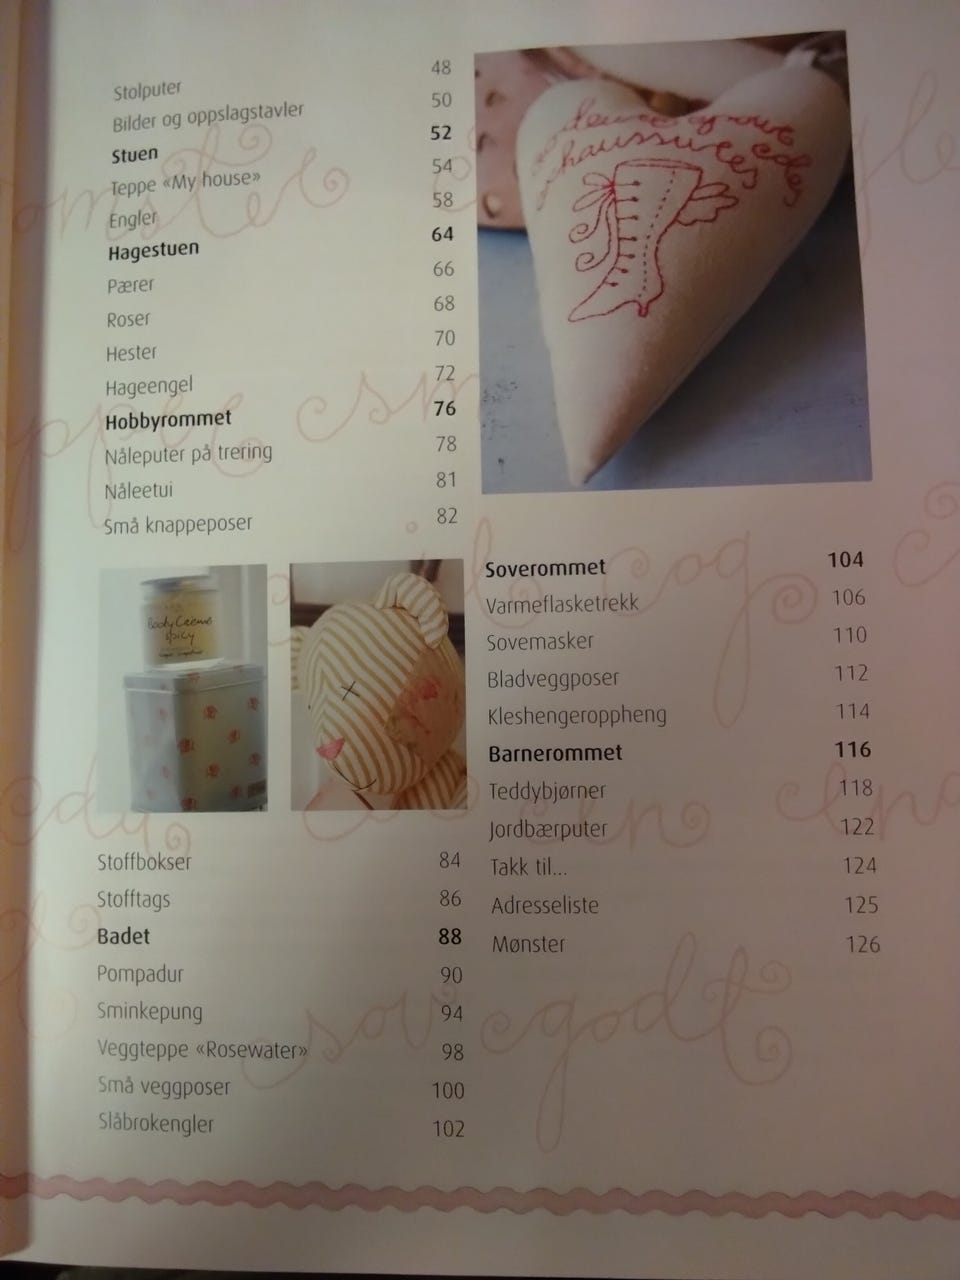 Stolputer 48
Bilder og oppslagstavler 50
Stuen 52
Teppe «My house» 54
Engler 58
Hagestuen 64
Pærer 66
Roser 68
Hester 70
Hageengel 72
Hobbyrommet 76
Nåleputer på trering 78
Nåleetui 81
Små knappeposer 82
chaussures
Body Crème
spicy
Stoffbokser 84
Stofftags 86
Badet 88
Pompadur 90
Sminkepung 94
Veggteppe «Rosewater» 98
Små veggposer 100
Slåbrokengler 102
Soverommet 104
Varmeflasketrekk 106
Sovemasker 110
Bladveggposer 112
Kleshengeroppheng 114
Barnerommet 116
Teddybjørner 118
Jordbærputer 122
Takk til... 124
Adresseliste 125
Mønster 126
sov godt